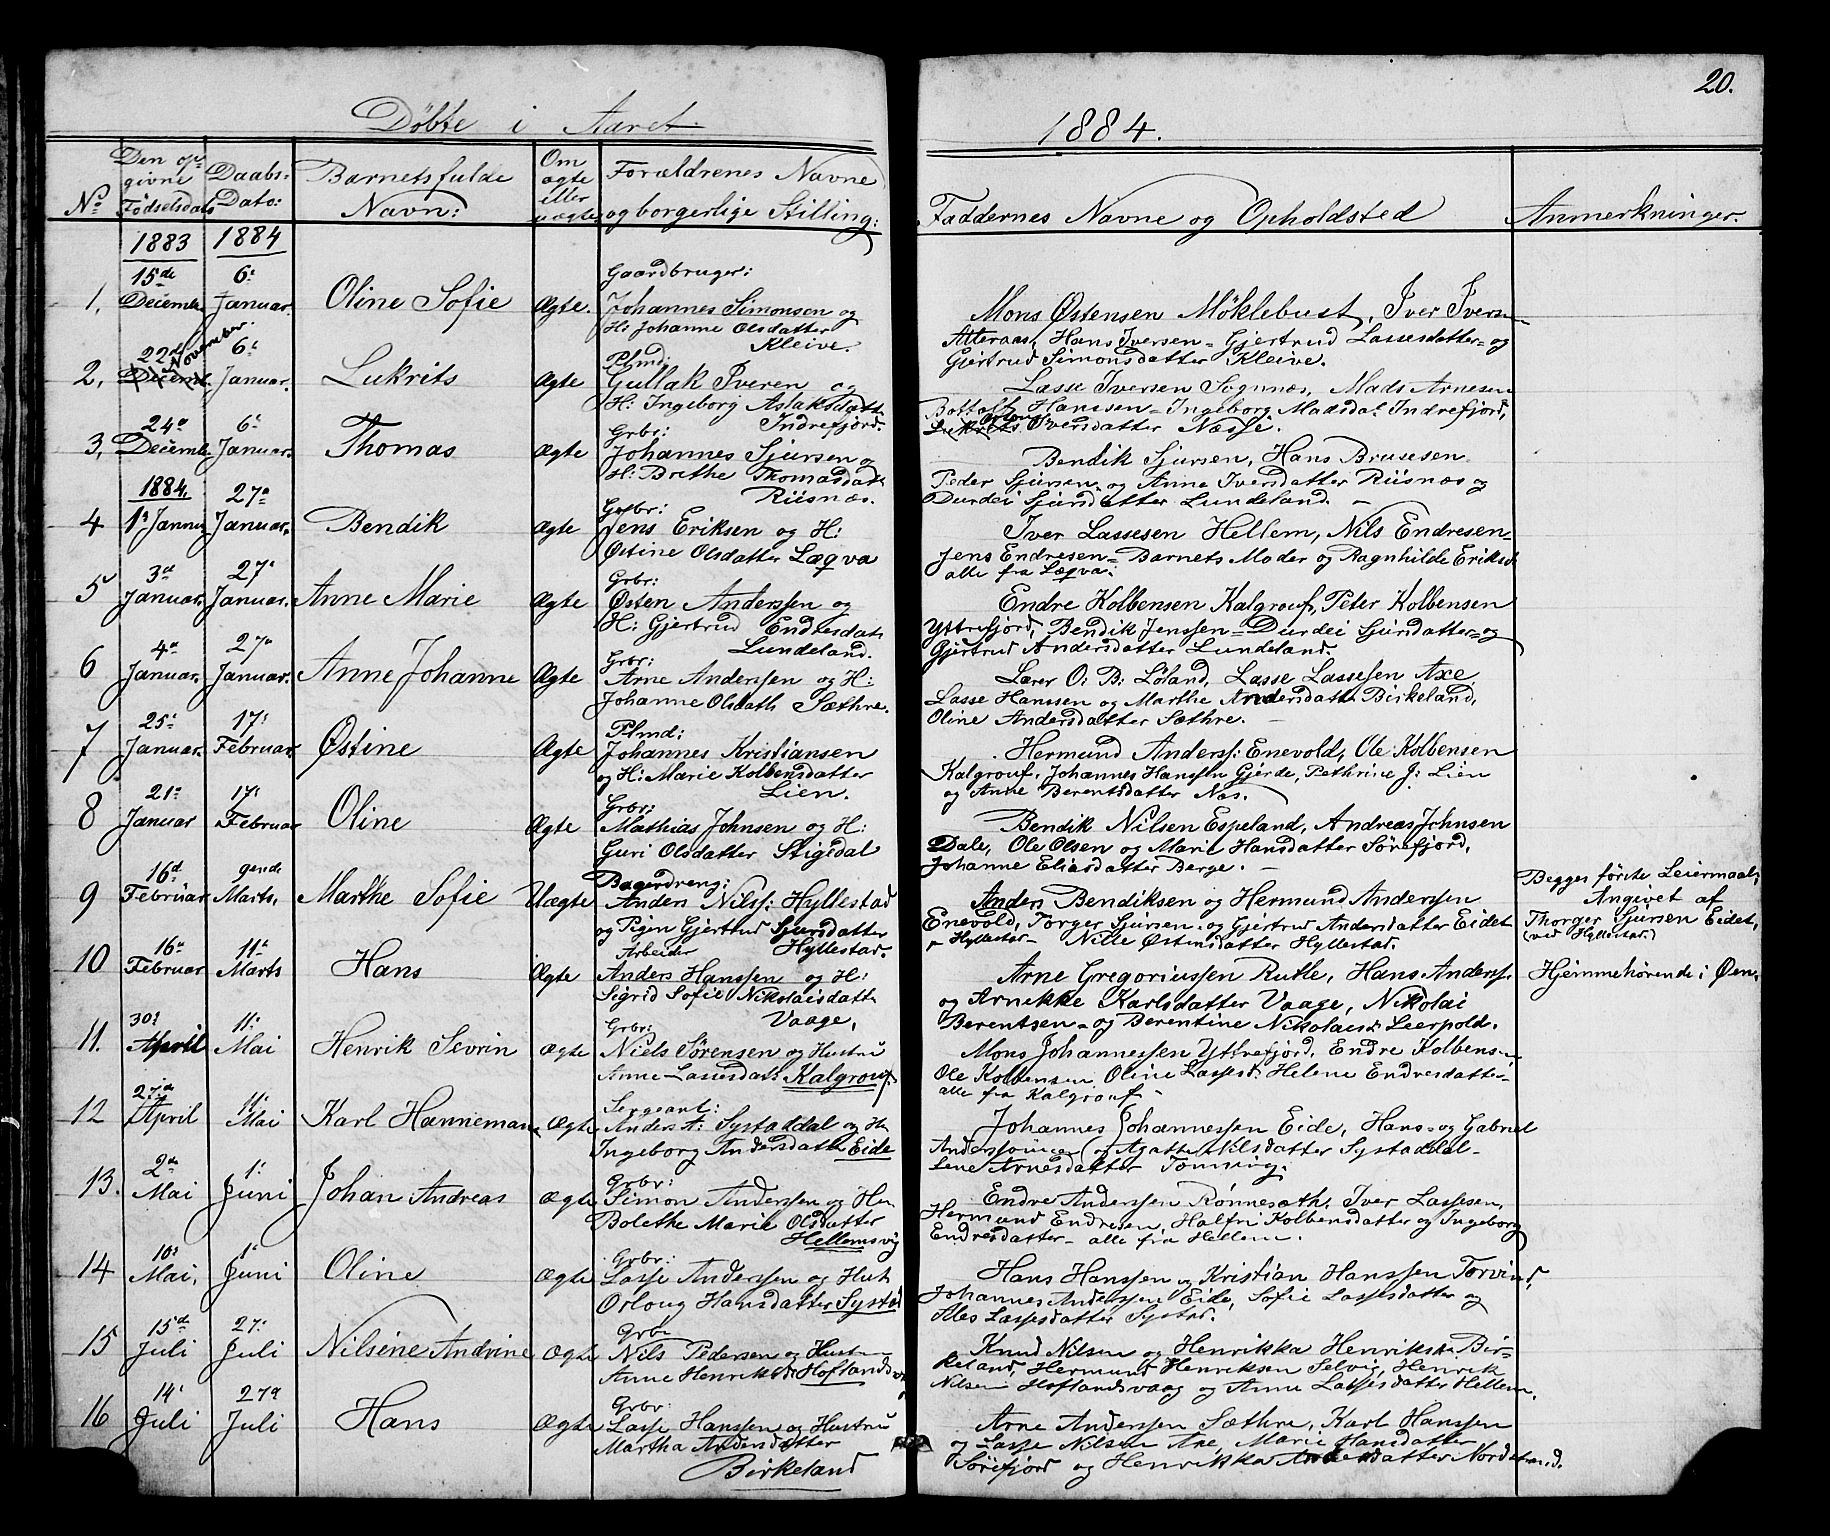 20.
Døbte i Aaret 1884.
No
Den op-
givne
Fødselsdato
Daabs-
Dato:
Barnets fulde
Navn:
Om
ægte
eller
uægte
Forældrenes Navne
og borgerlige Stilling:
Faddernes Navne og Opholdsted
Anmerkninger.
1883 1884
1, 15de Decemb. 6: Januar. Oline Sofie Ægte.
Gaardbruger:
Johannes Simonsen og
H: Johanne Olsdatter
Kleive.
Mons Østensen Möklebust, Iver Ivers
Atteraas, Hans Iversen = Gjertrud Lassesdatter = og
Gjertrud Simonsdatter Kleive.
2, 22d November. Decemb. 6: Januar. Lukrits Ægte
Plmd:
Gullak Iveren og
H: Ingeborg Aslaksdatt
Indrefjord.
Lasse Iversen Sognnæs, Mads Arnesen
Bottolf Hanssen = Ingeborg Madsdat Indrefjord,
Lukrits Iversdatter Næsse.
3, 24de Decemb. 6: Januar. Thomas Ægte
Grbr:
Johannes Sjursen og
H: Brithe Thomasdatt
Riisnæs.
Bendik Sjursen, Hans Brusesen
Peder Sjursen og Anne Iversdatter Riisnæs og
Durdei Sjursdatter Lundeland. -
1884,
4 1: Januar 27de Januar. Bendik Ægte
Grbr:
Jens Eriksen og H:
Østine Olsdatter Læqva
Iver Lassesen Hellem, Nils Endresen
Jens Endresen = Barnets Moder og Ragnhilde Eriksd
alle fra Læqva.
5 3d Januar. 27: Januar. Anne Marie Ægte
Grbr:
Østen Anderssen og
H: Gjertrud Endresdatt
Lundeland.
Endre Kolbensen Kalgrouf, Peter Kolbensen
Yttrefjord, Bendik Jenssen = Durdei Sjursdatter = og
Gjertrud Andersdatter Lundeland.
6 4de Januar. 27de Januar. Anne Johanne Ægte
Grbr:
Arne Anderssen og H:
Johanne Olsdatt Sæthre.
Lærer O: B: Löland, Lasse Lassesen Axe,
Lasse Hanssen og Marthe Andersdatt Birkeland,
Oline Andersdatter Sæthre. -
7 25: Januar. 17: Februar. Østine Ægte
Plmd:
Johannes Kristiansen
og H: Marie Kolbensdatter
Lien.
Hermund Anderss: Enevold, Ole Kolbensen
Kalgrouf, Johannes Hanssen Gjerde, Pethrine J: Lien
og Anne Berentsdatter Næs.
8 21: Januar 17: Februar Oline Ægte
Grbr:
Mathias Johnsen og H:
Guri Olsdatter Stigedal
Bendik Nilsen Espeland, Andreas Johnsen
Dale, Ole Olsen og Marie Hansdatter Sörefjord,
Johanne Eliasdatter Berge. -
9 16d Februar gende Marts, Marthe Sofie Uægte
Bagerdreng:
Anders Nilss: Hyllestad
og Pigen Gjertrud Sjursdatter
Hyllestad.
Anders Bendiksen og Hermund Anderssen
Enevold, Torger Sjursen og Gjertrud Andersdatter Eidet
p Hyllestad - Nille Østensdatter Hyllestad.
Begges første Leiermaal,
Angivet af
Thorger Sjursen Eidet,
(ved Hyllestad.)
10 16de Februar 11: Marts Hans Ægte
Arbeider
Anders Hanssen og H:
Sigrid Sofie Nikolaisdatt
Vaage,
Arne Gregoriussen Rutle, Hans Anderss.
og Arnikke Karlsdatter Vaage, Nikolai
Berentsen = og Berentine Nikolaisd: Leerpold.
Hjemmehørende i Øen.
11. 30: April 11: Mai Henrik Sevrin ægte
Grbr:
Niels Sørensen og Hustru
Anne Lassesdatt Kalgrouf
Mons Johannessen Yttrefjord, Endre Kolbens
Ole Kolbensen, Oline Lassesd: Helene Endresdatter
alle fra Kalgrouf -
12 27de April 11: Mai Karl Hanneman Ægte
Sergeant:
Anders A: Systaddal og H:
Ingeborg Andersdatte Eide
Johannes Johannessen Eide, Hans = og Gabriel
Agatte Nilsdatter Systaddal -
Lene Arnesdatter Tonning.
13. 2de Mai 1: Juni Johan Andreas ægte
Grbr:
Simon Anderssen og Hu
Bolethe Marie Olsdatter
Hellemsvig
Endre Anderssen Rønnesæth, Iver Lassesen,
Hermund Endresen, Halfri Kolbensdatter og Ingeborg
Endresdatter - alle fra Hellem.
14 10: Mai, 1: Juni Oline ægte
Grbr:
Lasse Anderssen og Hust
Orloug Hansdatter Systad
Hans Hanssen og Kristian Hanssen Torvind,
Johannes Anderssen Eide, Sofie Lassesdatter og
Ales Lassesdatter Systad.
15 15de Juli 27: Juli Nilsine Andrine Ægte
Grbr
Nils Pedersen og Hustru
Anne Henriksd: Hoflandsv
Knud Nilsen og Henrikka Henriksd: Bir=
keland, Hermund Henriksen Selvig, Henrik
Nilsen Hoflandsvaag og Anne Lassesdatter Hellem.
16 14: Juli 27de Juli Hans Ægte
Grbr:
Lasse Hanssen og Hustru
Martha Andersdatter
Birkeland
Arne Anderssen Sæthre, Karl Hanssen
og Lasse Nilsen Axe, Marie Hansdatter
Sörefjord og Henrikka Andersdatter Nordstrand.